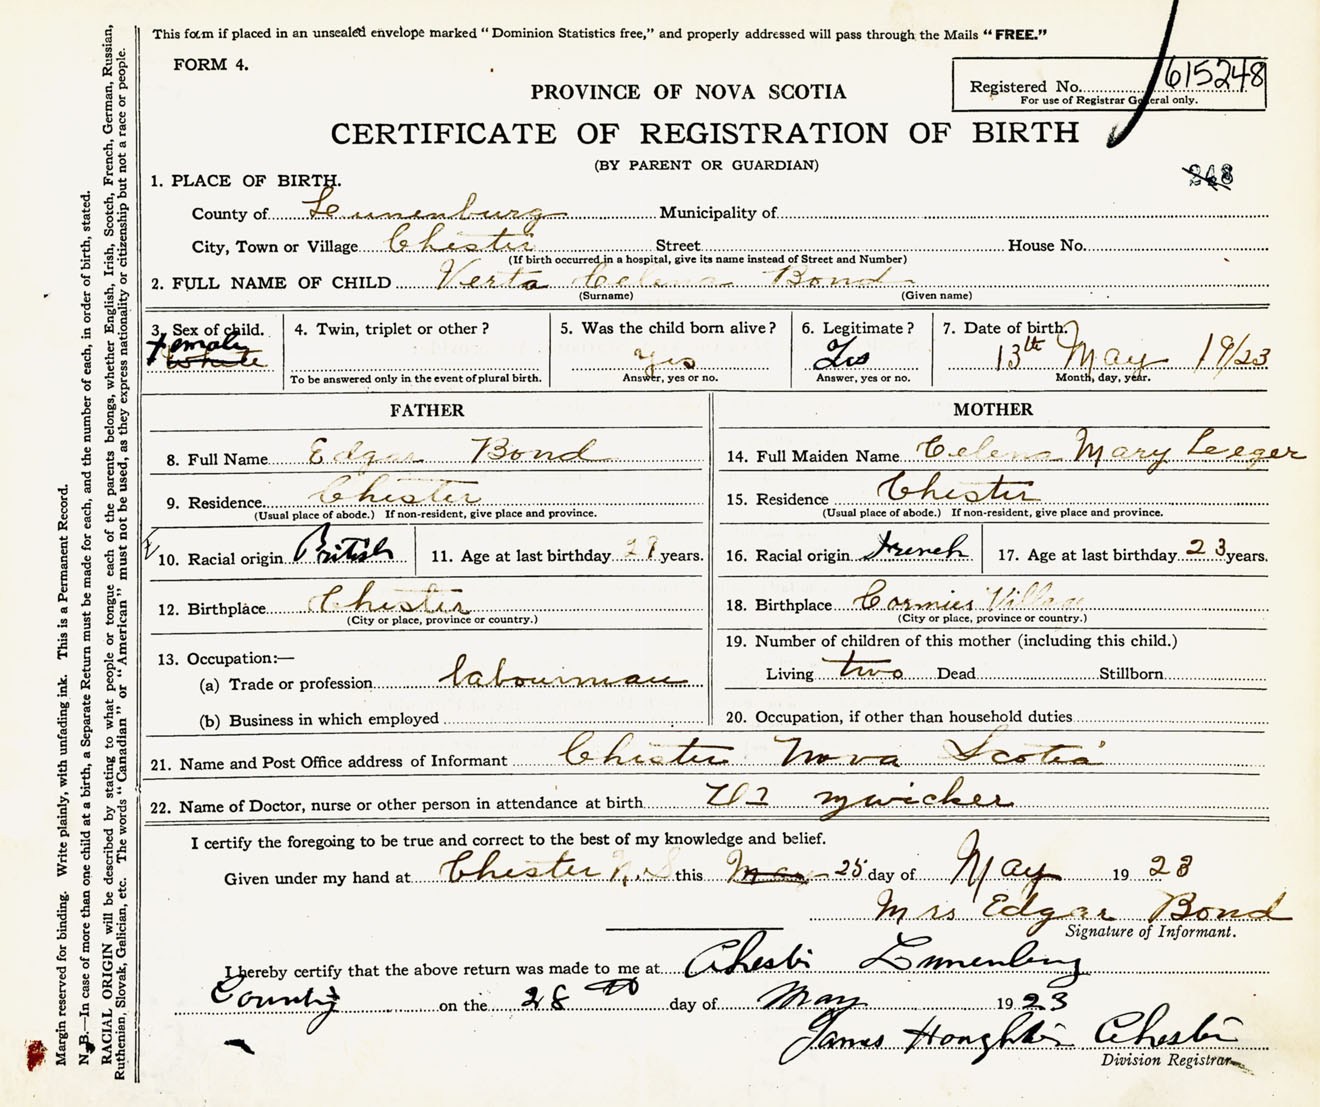 This form if placed in an unsealed envelope marked "Dominion Statistics free," and properly addressed will pass through the Mails "FREE."
FORM 4.
Registered No. 615248
For use of Registrar General only.
PROVINCE OF NOVA SCOTIA
CERTIFICATE OF REGISTRATION OF BIRTH
(BY PARENT OR GUARDIAN)
248
1. PLACE OF BIRTH.
County of Lunenburg Municipality of
City, Town or Village Chester Street House No.
(If birth occurred in a hospital, give its name instead of Street and Number)
2. FULL NAME OF CHILD Verta Celena Bond
(Surname) (Given name)
3. Sex of child. 4. Twin, triplet or other? 5. Was the child born alive? 6. Legitimate? 7. Date of birth.
Female
White Yes Yes 13th May 1923
To be answered only in the event of plural birth. Answer, yes or no. Answer, yes or no. Month, day, year.
FATHER
8. Full Name Edgar Bond
9. Residence Chester
(Usual place of abode.) If non-resident, give place and province.
10. Racial origin British 11. Age at last birthday years.
12. Birthplace Chester
(City or place, province or country.)
13. Occupation:—
(a) Trade or profession labourman
(b) Business in which employed
MOTHER
14. Full Maiden Name Celena Mary Leeger
15. Residence Chester
(Usual place of abode.) If non-resident, give place and province.
16. Racial origin French 17. Age at last birthday 23 years.
18. Birthplace Cormies Village
(City or place, province or country.)
19. Number of children of this mother (including this child.)
Living two Dead Stillborn
20. Occupation, if other than household duties
21. Name and Post Office address of Informant Chester Nova Scotia
22. Name of Doctor, nurse or other person in attendance at birth Zwicker
I certify the foregoing to be true and correct to the best of my knowledge and belief.
Given under my hand at Chester N.S this May 25 day of May 1923
Mrs Edgar Bond
Signature of Informant.
I hereby certify that the above return was made to me at Chester Lunenburg
County on the 28th day of May 1923
James Houghton Chester
Division Registrar
Margin reserved for binding. Write plainly, with unfading ink. This is a Permanent Record.
N.B.—In case of more than one child at a birth, a Separate Return must be made for each, and the number of each, in order of birth, stated.
RACIAL ORIGIN will be described by stating to what people or tongue each of the parents belongs, whether English, Irish, Scotch, French, German, Russian,
Ruthenian, Slovak, Galician, etc. The words "Canadian" or "American" must not be used, as they express nationality or citizenship but not a race or people.